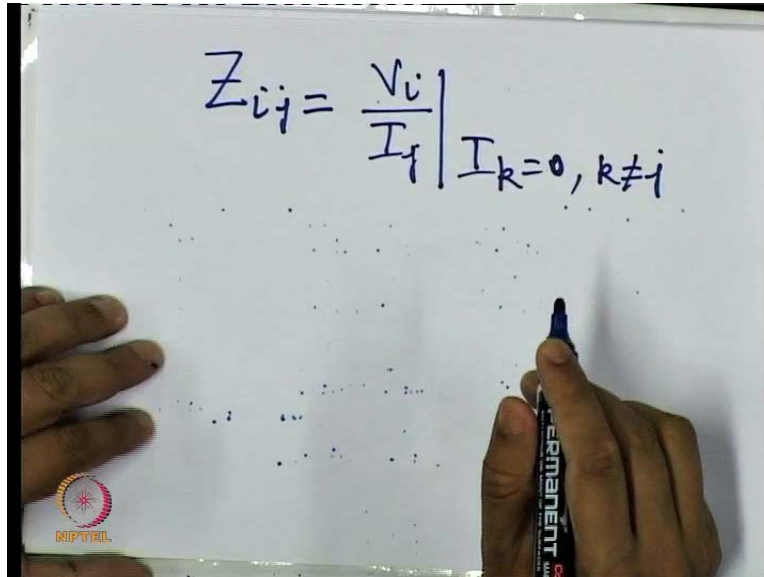 Z_{ij} = V_i / I_j | I_k=0, k≠j
PERMANENT
NPTEL